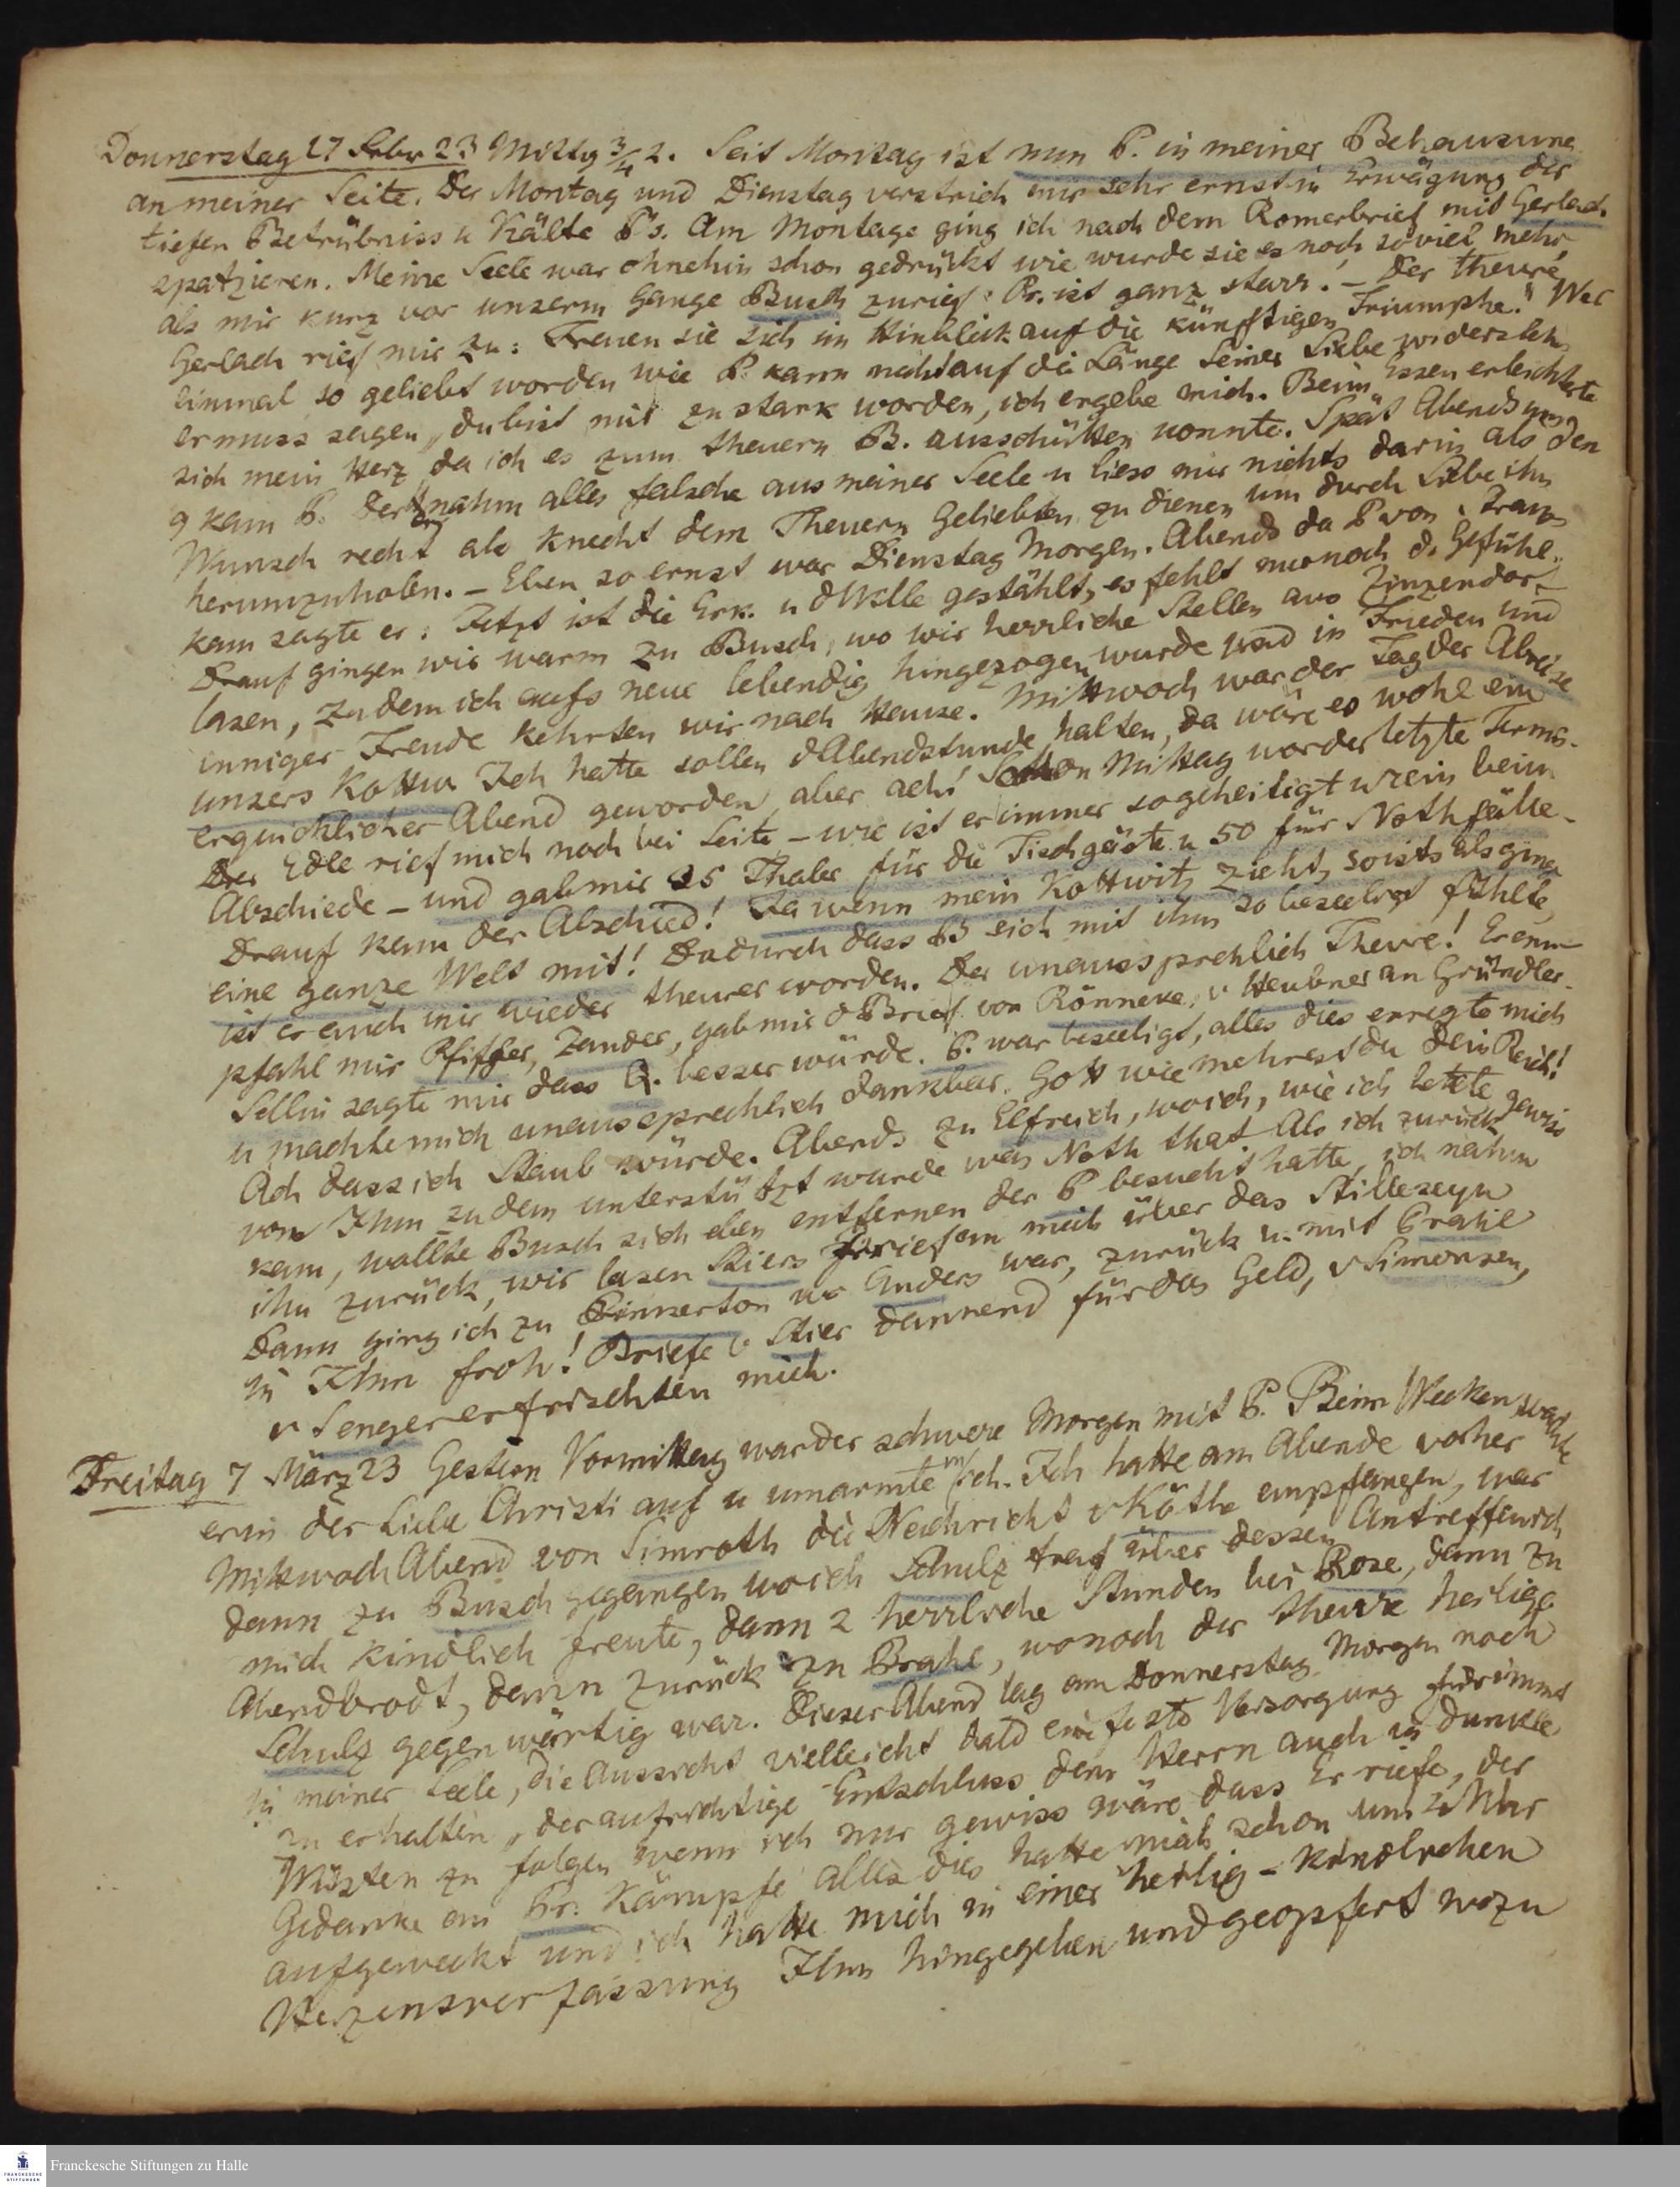 Donnerstag 27 Febr 23 Mittg 3/4 2. Seit Montag ist nun P. in meiner Behausung
an meiner Seite. Der Montag und Dienstag verstrich mir sehr ernst in Erwägung der
tiefen Betrübniss u Kälte P's. Am Montage ging ich nach dem Romerbrief mit Gerlach
spatzieren. Meine Seele war ohnehin schon gedrückt wie wurde sie es noch soviel mehr
als mir kurz vor unserm Gange Busch zurief: Pr. ist ganz starr. – Der theure
Gerlach rief mir zu: Freuen sie sich im Hinblick auf die künftigen Triumphe!" Wer
einmal so geliebt worden wie P. kann nicht auf die Länge Seiner Liebe widerstehn
er muss sagen „du bist mir zu stark worden, ich ergebe mich. Beim Essen erleichterte
sich mein Herz da ich es zum theuern B. ausschütten konnte. Spät Abends gegen
9 kam P. der Herr nahm alles falsche aus meiner Seele u liess mir nichts darin als den
Wunsch recht als Knecht dem Theuern Geliebten zu dienen um durch Liebe ihn
herumzuholen. – Eben so ernst war Dienstag Morgen. Abends da P von
kam sagte er: Jetzt ist die Erk. u d Wille gestählt, es fehlt nur noch d. Gefühl.
Drauf gingen wir warm zu Busch, wo wir herrliche Stellen aus Zinzendorf
lasen, zu dem ich aufs neue lebendig hingezogen wurde und in Frieden und
inniger Freude kehrten wir nach Hause. Mittwoch war der Tag der Abreise
unsers Kottw. Ich hatte sollen d Abendstunde halten, da wäre es wohl ein
erquicklicher Abend geworden, aber ach! Schon Mittag war der letzte Termin.
Der Edle rief mich noch bei Seite – wie ist er immer so geheiligt u rein beim
Abschiede – und gab mir 25 Thaler für die Tischgäste u 50 für Nothfälle.
Drauf kam der Abschied! Ja wenn mein Kottwitz zieht, so ists als ging
eine ganze Welt mit! Dadurch dass P sich mit ihm so beseeligt fühlte,
ist er auch mir wieder theurer worden. Der unaussprechlich Theure! Er em
pfahl mir Pfiffer, Zander, gab mir d Brief von Rönneke, v Heubner an Gründler.
Sellin sagte mir dass Q. besser würde. P. war beseeligt, alles dies erregte mich
u machte mich unaussprechlich dankbar. Gott wie mehrest du dein Reich!
Ach dass ich Staub würde. Abends zu Elfreich, wo ich, wie ich betete gewiss
von Ihm zu dem unterstützt wurde was Noth that. Als ich zurück
kam, wollte Busch sich eben entfernen der P besucht hatte, ich nahm
ihn zurück, wir lasen Stiers Brief an mich über das Stilleseyn
Dann ging ich zu Pinkerton wo Anders war, zurück u. mit Prahl
in Ihm froh! Briefe v. Stier dankend für das Geld, v Simonsen,
v Senger erfrischten mich.
Freitag 7 März 23 Gestern Vormittag war der schwere Morgen mit P. Beim Wecken wachte
er in der Liebe Christi auf u umarmte mich. Ich hatte am Abende vorher
Mittwoch Abend von Simroth die Nachricht v Käthe empfangen, war
dann zu Busch gegangen wo ich Schulz traf über dessen Antreffen ich
mich kindlich freute, dann 2 herrliche Stunden bei Rose, dann zu
Abendbrodt, dann zurück zu Brahl, wonach der theure heilige
Schulz gegenwärtig war. Dieser Abend lag am Donnerstag Morgen noch
in meiner Seele, die Aussicht vielleicht bald eine feste Versorgung
zu erhalten, der aufrichtige Entschluss dem Herrn auch in dunkle
Wüsten zu folgen wenn ich nur gewiss wäre dass Er riefe, der
Gedanke an Pr. Kämpfe alles dies hatte mich schon um 2 Uhr
aufgeweckt und ich hatte mich in einer heilig-kindlichen
Herzensverfassung Ihm hingegeben und geopfert wozu
Franckesche Stiftungen zu Halle
FRANCKESCHE
STIFTUNGEN